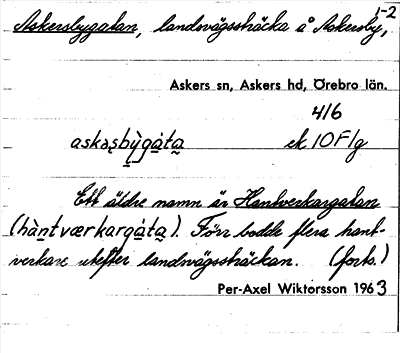 1-2
Askersbygatan, landsvägssträcka å Askersby,
Askers sn, Askers hd, Örebro län.
4/6
askəs̩bỳgàta̱ ek 10F/g
Ett äldre namn är Hantverkargatan
(hàntværkargàta̱). Förr bodde flera hant-
verkare utefter landsvägssträckan. (forts.)
Per-Axel Wiktorsson 1963